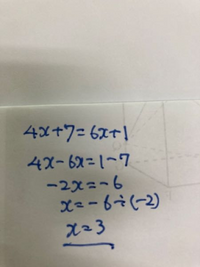 4x+7=6x+1
4x-6x=1-7
-2x=-6
x=-6÷(-2)
x=3